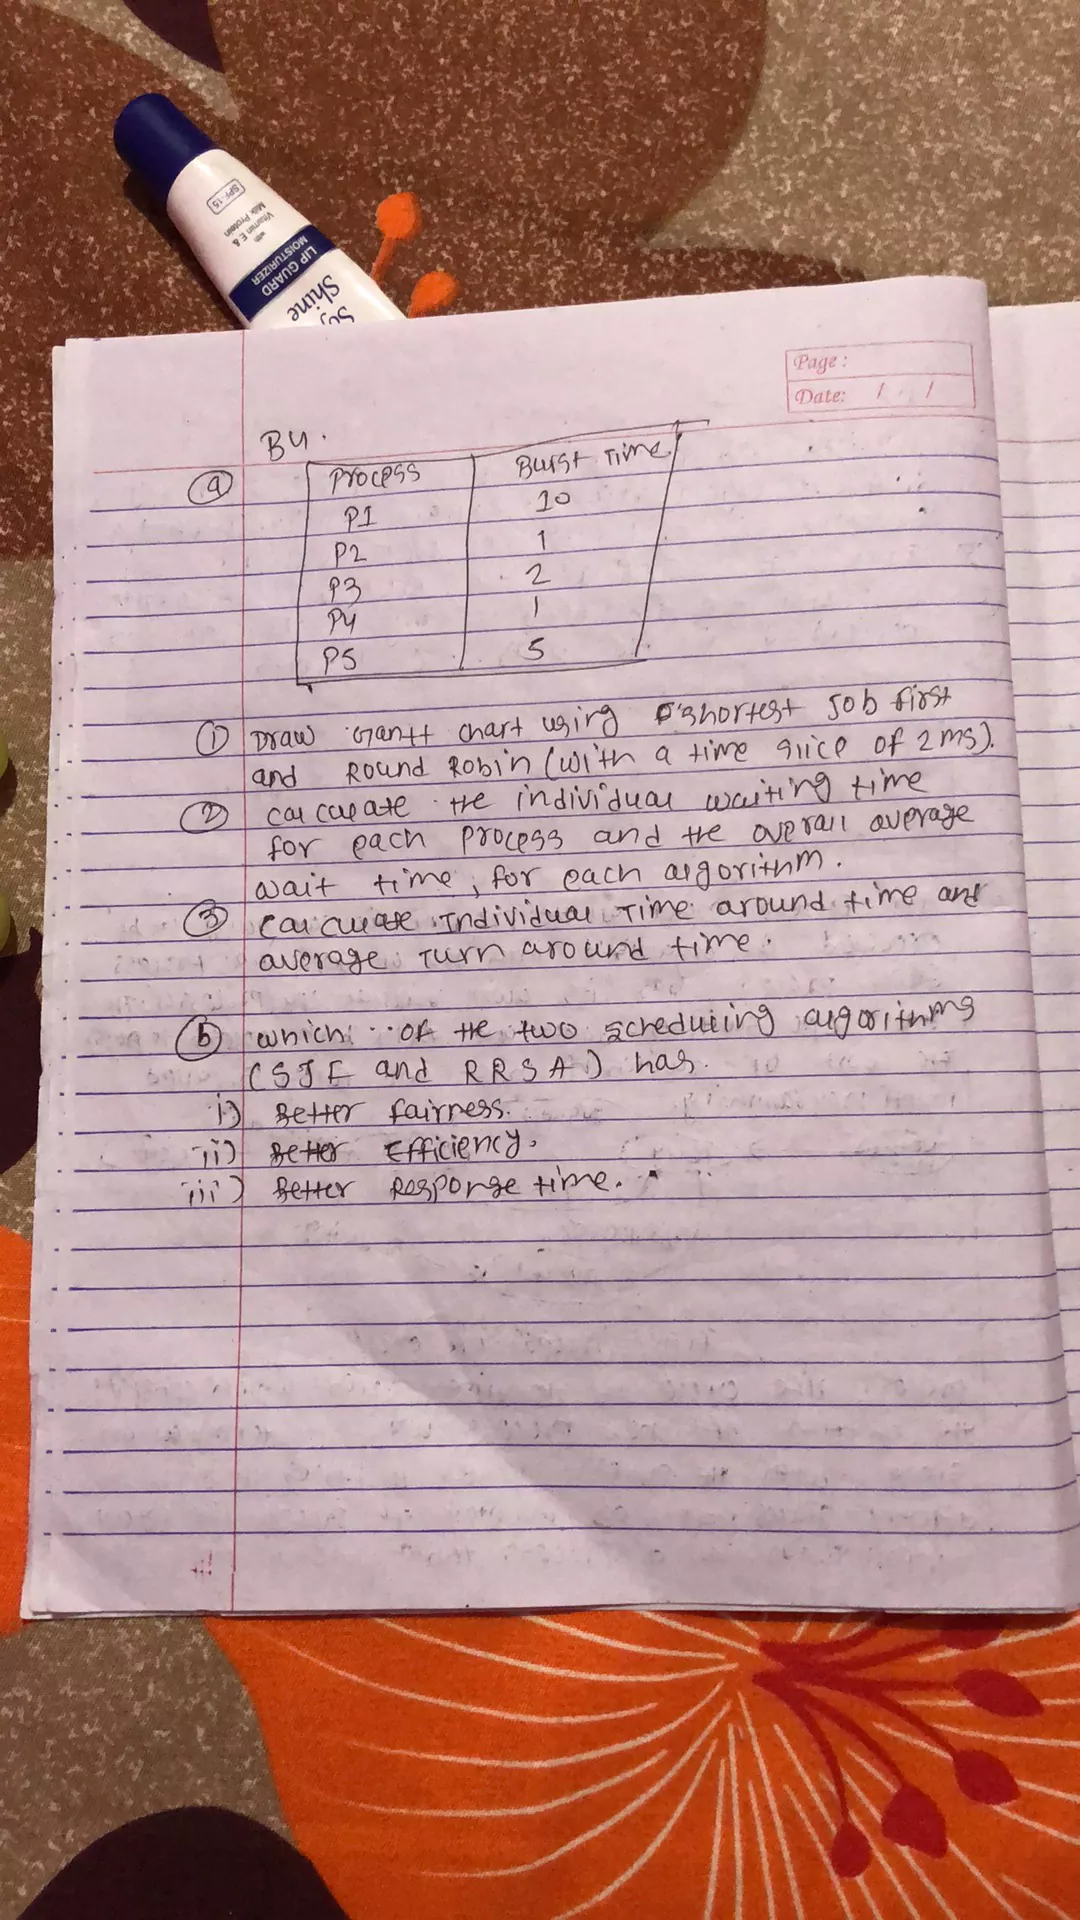 SPF-15
with
Vitamin E &
Milk Protein
LIP GUARD
MOISTURIZER
Shine
Page :
Date: / /
B4.
(a)
Process Burst Time
P1 10
P2 1
P3 2
P4 1
P5 5
(1) Draw Gantt chart using shortest Job first
and Round Robin (with a time slice of 2ms).
(2) calculate the individual waiting time
for each process and the overall average
wait time, for each algorithm.
(3) calculate Individual Time around time and
average Turn around time.
(b) which of the two scheduling algorithms
(SJF and RRSA) has.
i) Better fairness.
ii) Better Efficiency.
iii) Better Response time.